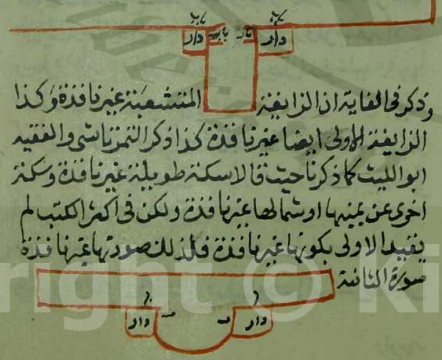 باب باب
دار باب باب دار
وذكر في الغاية ان الزايغة المتشعبة غير نافذة وكذا
الزايغة الاولى ايضا غير نافذة كذا ذكر التمرتاشي والفقيه
ابو الليث كما ذكرنا حيث قالا سكة طويلة غير نافذة وسكة
اخرى عن يمينها او شمالها غير نافذة ولكن في اكثر الكتب لم
يقيد الاولى بكونها غير نافذة فلذلك صورتها غير نافذة
صورة الثانية
دار دار
right © Ki